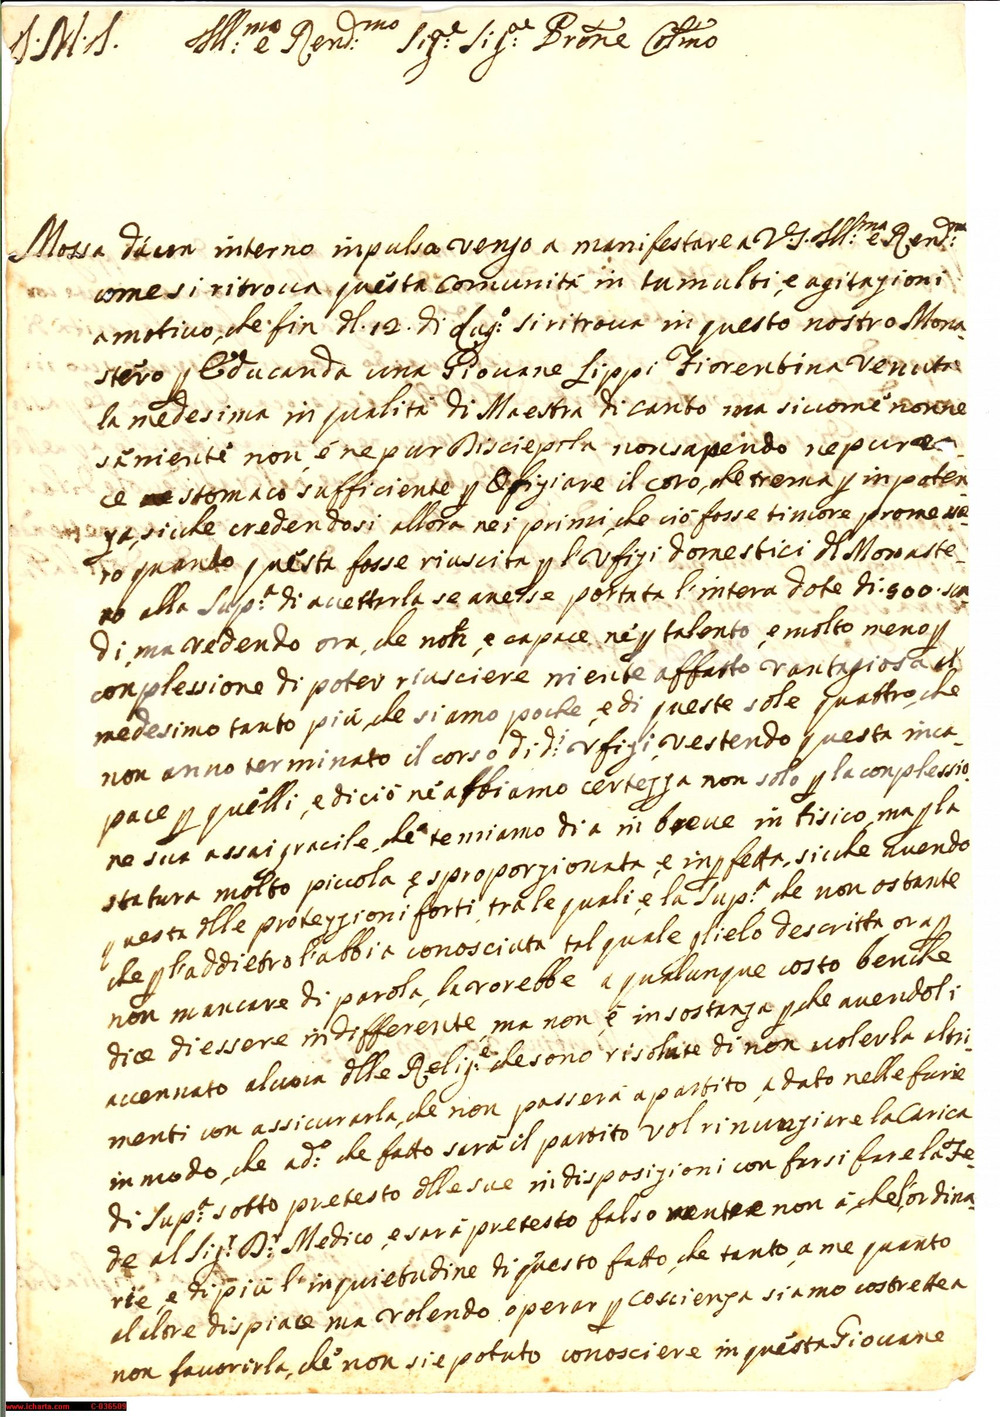 J. M. J. Ill:mo e Rend:mo Sig:e Sig:e Prone Colmo
Mossa da un interno inpulso vengo a manifestare a V.S. Ill:ma e Rend:ma
come si ritrova questa Comunità in tumulti, e agitazioni
a motivo, che fin dl. 12. di Lug:o si ritrova in questo nostro Mona-
stero p Educanda una Giovane Lippi Fiorentina venuta
la medesima in qualità di Maestra di canto ma siccome non ne
sà niente non, é ne pur Disciepola non sapendo ne pure
ce stomaco sufficiente p Ofiziare il coro, che trema p inpoten-
za, sicche credendosi allora nei primi, che ciò fosse timore promesse-
ro quanto questa fosse riuscita p l'Ufizi domestici dl Monaste-
ro alla Sup:a di accettarla se avesse portata l'intera dote di 900. scu-
di, ma vedendo ora, che non, e capace né p talento, e molto meno p
conplessione di poter riusciere niente affatto vantagiosa al
medesimo tanto più, che siamo poche, e di queste sole quattro, che
non anno terminato il corso di d:i Ufizi, vestendo questa inca-
pace p quelli, e di ciò né abbiamo certezza non solo p la conplessio-
ne sua assai gracile, che temiamo dia in breve in tisico, ma p la
statura molto piccola, e sproporzionata, e inpfetta, sicche avendo
questa dlle protezzioni forti, tra le quali, e la Sup:a che non ostante
che p l'addietro l'abbia conosciuta tal quale glielo descritta, ora p
non mancare di parola, la vorebbe a qualunque costo benche
dice di essere indifferente, ma non, é in sostanza p che avendoli
accennato alcuna dlle Relig:e che sono risolute di non volerla altri-
menti con assicurarla, che non passerà a partito, a dato nelle furie
in modo, che ad:o che fatto sarà il partito vol rinunziare la Carica
di Sup:a sotto pretesto dlle sue indisposizioni con farsi fare la Fe-
de al Sig:r D:r Medico, e sarà pretesto falso mentre non à, che l'ordina-
rie, e di più l'inquietudine di questo fatto, che tanto, a me quanto
al altre dispiace ma volendo operar p Coscienza siamo costrette a
non favorirla, che non si è potuto conosciere in questa Giovane
www.lcharta.com C-036589